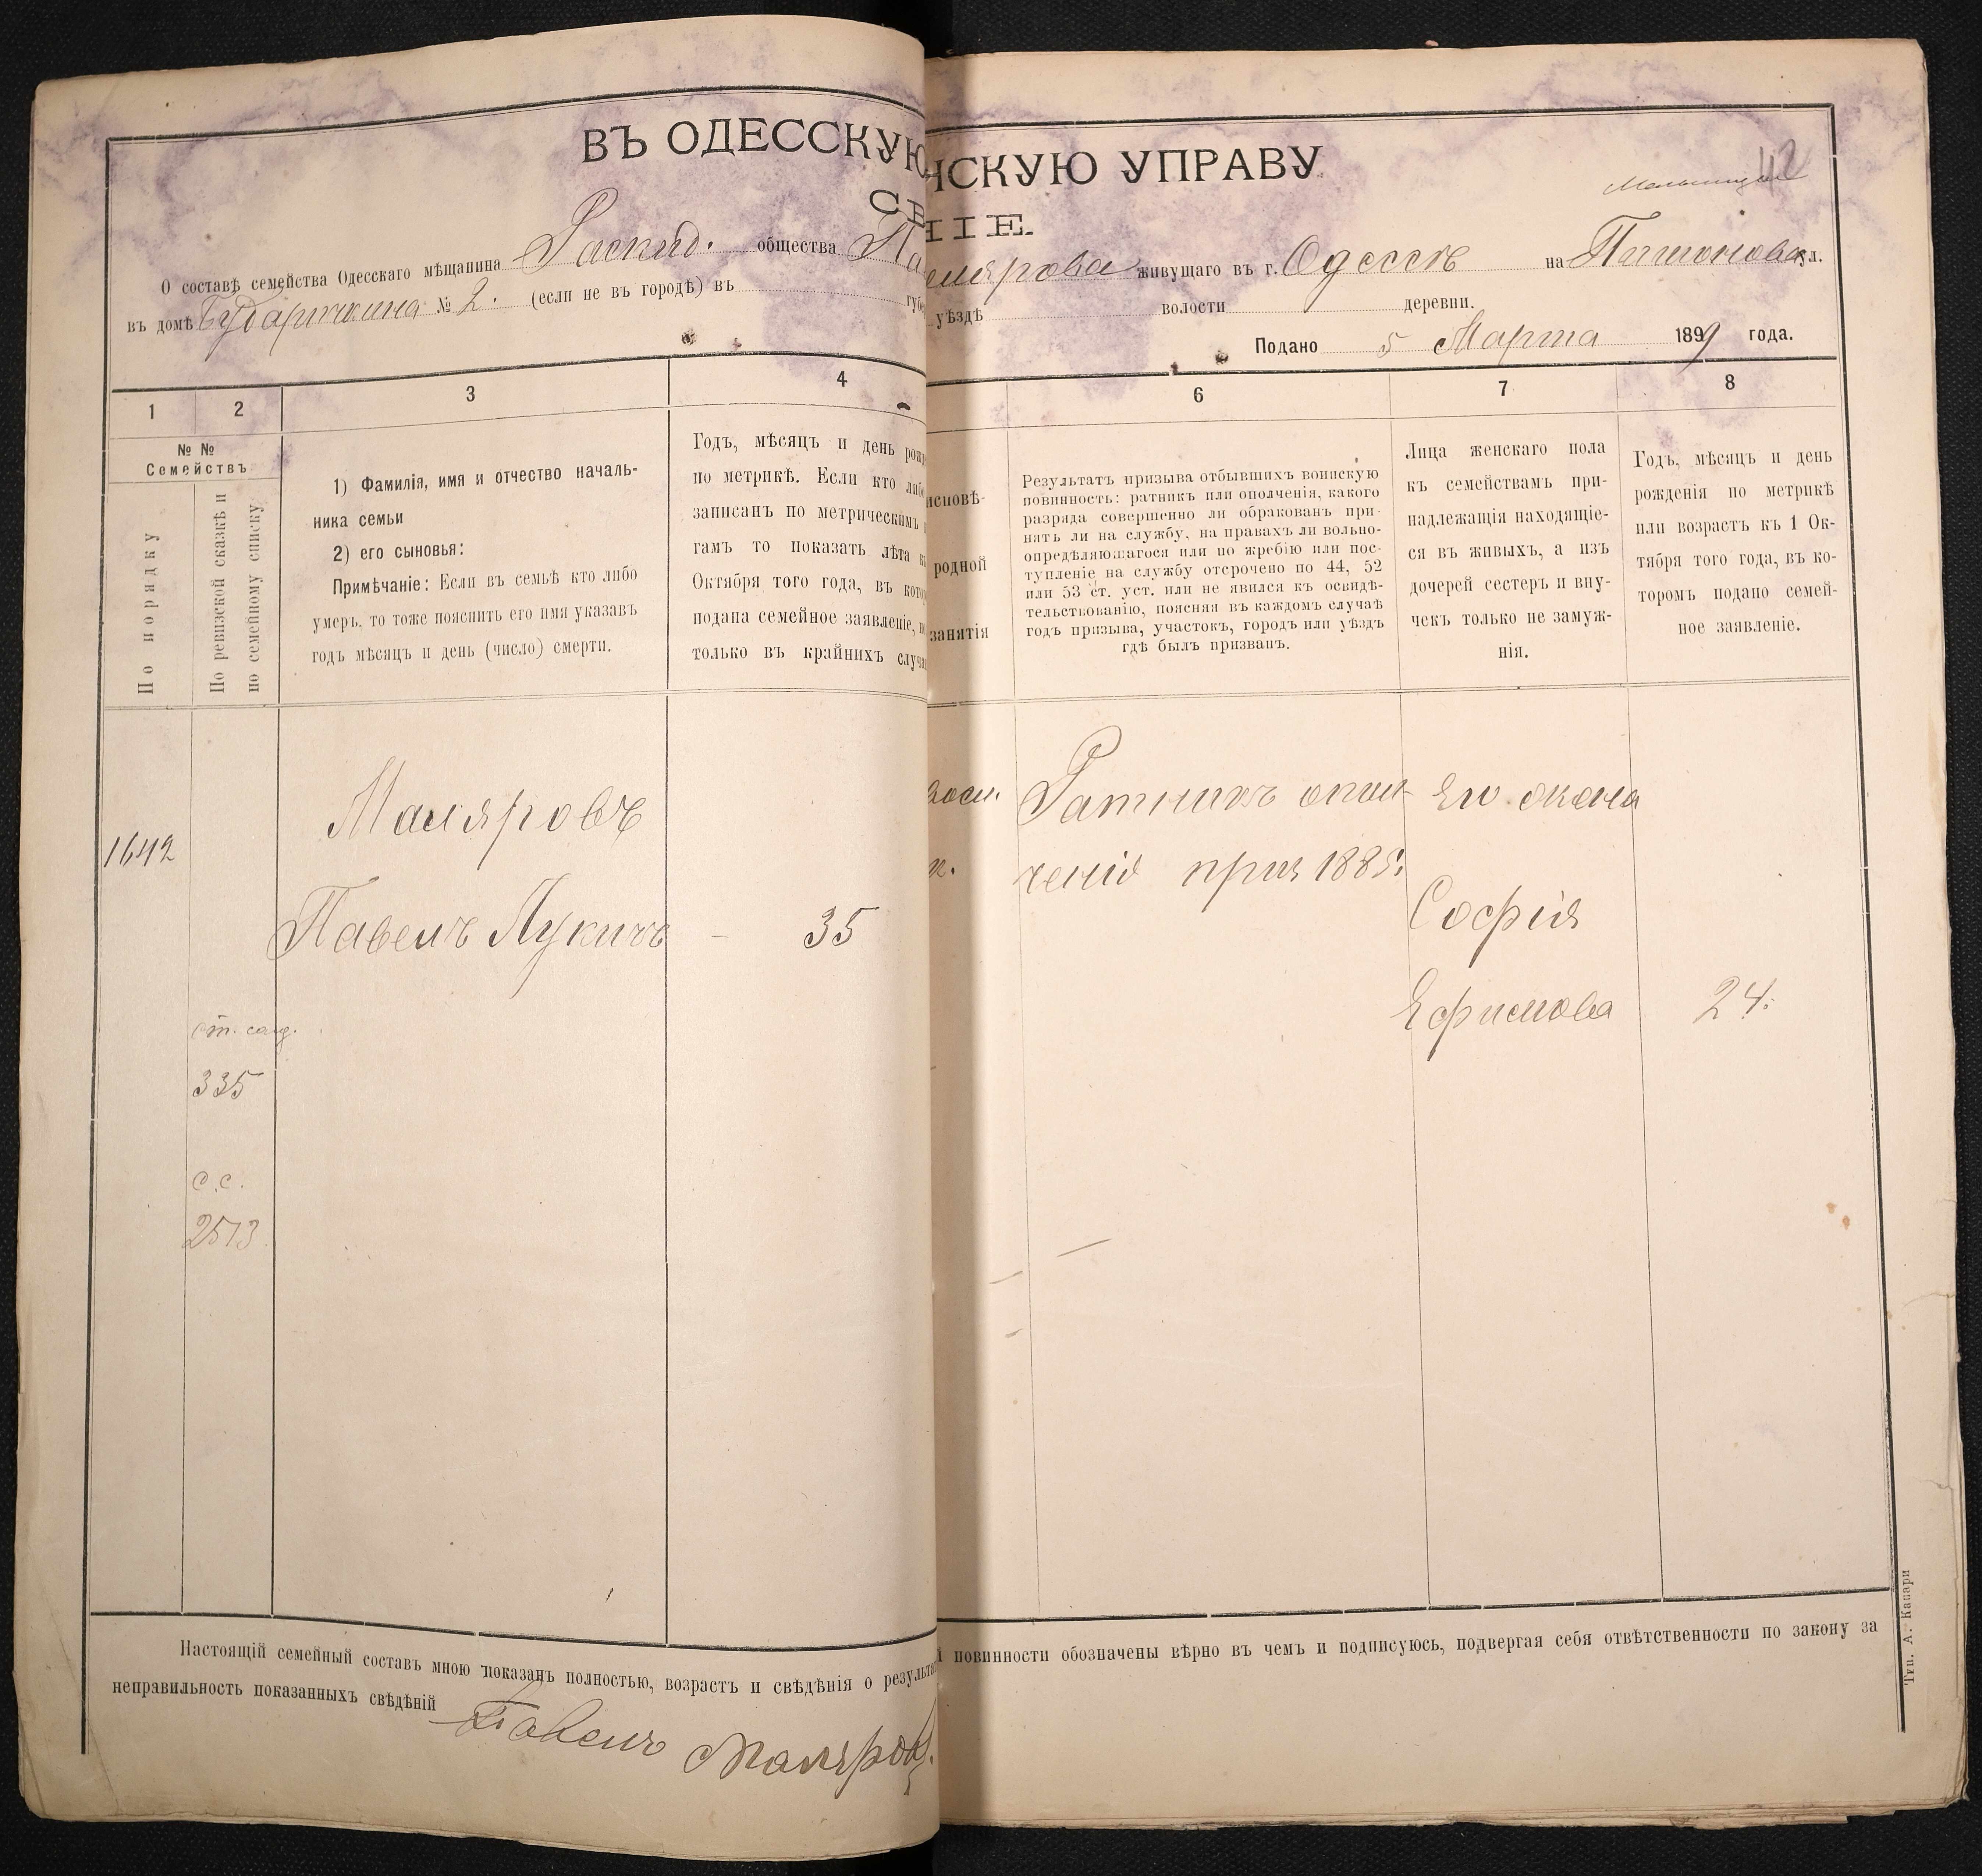 ВЪ ОДЕССКУЮ
НСКУЮ УПРАВУ
42
СВ
НІЕ.
О составѣ семейства Одесскаго мѣщанина Раскид. общества Па
Малярова живущаго въ г. Одессѣ на ул.
въ домѣ № 2. (если не въ городѣ) въ губе
уѣздѣ волости деревни.
Подано 5 Марта 1899 года.
1
2
3
4
6
7
8
№ №
Семействъ
По порядку
По ревизской сказкѣ и
по семейному списку
1) Фамилія, имя и отчество началь-
ника семьи
2) его сыновья:
Примѣчаніе: Если въ семьѣ кто либо
умеръ, то тоже пояснить его имя указавъ
годъ мѣсяцъ и день (число) смерти.
Годъ, мѣсяцъ и день рожд
по метрикѣ. Если кто либо
записанъ по метрическимъ к
гамъ то показать лѣта к
Октября того года, въ кото
подана семейное заявленіе, н
только въ крайнихъ случа
исповѣ-
родной
занятія
Результатъ призыва отбывшихъ воинскую
повинность: ратникъ или ополченія, какого
разряда совершенно ли обракованъ при-
нятъ ли на службу, на правахъ ли вольно-
опредѣляющагося или по жребію или пос-
тупленіе на службу отсрочено по 44, 52
или 53 ст. уст. или не явился къ освидѣ-
тельствованію, поясняя въ каждомъ случаѣ
годъ призыва, участокъ, городъ или уѣздъ
гдѣ былъ призванъ.
Лица женскаго пола
къ семействамъ при-
надлежащія находящіе-
ся въ живыхъ, а изъ
дочерей сестеръ и вну-
чекъ только не замуж-
нія.
Годъ, мѣсяцъ и день
рожденія по метрикѣ
или возрастъ къ 1 Ок-
тября того года, въ ко-
торомъ подано семей-
ное заявленіе.
1642
Маляровъ
Павелъ Лукичъ - 35
Ратникъ опол-
ченія приз 1885.
Его жена
Софія
Ефимова 24.
335
с.с.
2513
Настоящій семейный составъ мною показанъ полностью, возрастъ и свѣдѣнія о результат
й повинности обозначены вѣрно въ чемъ и подписуюсь, подвергая себя отвѣтственности по закону за
неправильность показанныхъ свѣдѣній Павелъ Маляровъ
Тип. А. Капари